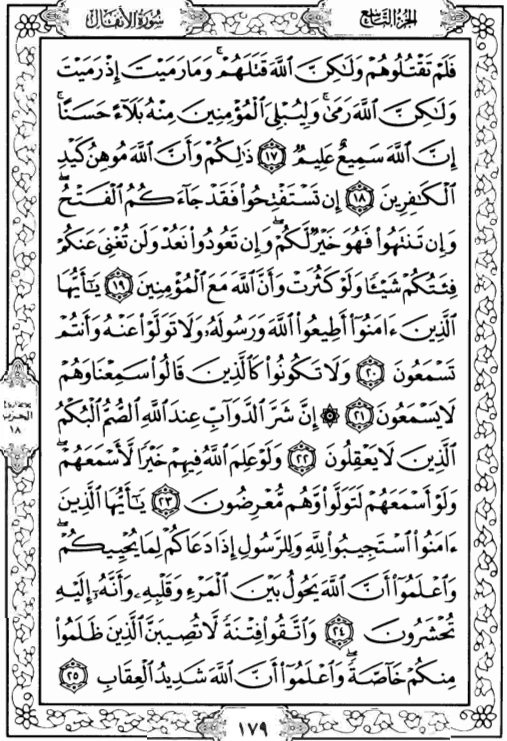 الجزء التاسع
سورة الأنفال
فَلَمْ تَقْتُلُوهُمْ وَلَٰكِنَّ ٱللَّهَ قَتَلَهُمْ ۚ وَمَا رَمَيْتَ إِذْ رَمَيْتَ
وَلَٰكِنَّ ٱللَّهَ رَمَىٰ ۚ وَلِيُبْلِيَ ٱلْمُؤْمِنِينَ مِنْهُ بَلَآءً حَسَنًا ۚ
إِنَّ ٱللَّهَ سَمِيعٌ عَلِيمٌ ١٧ ذَٰلِكُمْ وَأَنَّ ٱللَّهَ مُوهِنُ كَيْدِ
ٱلْكَٰفِرِينَ ١٨ إِن تَسْتَفْتِحُوا۟ فَقَدْ جَآءَكُمُ ٱلْفَتْحُ ۖ
وَإِن تَنتَهُوا۟ فَهُوَ خَيْرٌ لَّكُمْ ۖ وَإِن تَعُودُوا۟ نَعُدْ وَلَن تُغْنِيَ عَنكُمْ
فِئَتُكُمْ شَيْـًٔا وَلَوْ كَثُرَتْ وَأَنَّ ٱللَّهَ مَعَ ٱلْمُؤْمِنِينَ ١٩ يَٰٓأَيُّهَا
ٱلَّذِينَ ءَامَنُوٓا۟ أَطِيعُوا۟ ٱللَّهَ وَرَسُولَهُۥ وَلَا تَوَلَّوْا۟ عَنْهُ وَأَنتُمْ
تَسْمَعُونَ ٢٠ وَلَا تَكُونُوا۟ كَٱلَّذِينَ قَالُوا۟ سَمِعْنَا وَهُمْ
لَا يَسْمَعُونَ ٢١ ۞ إِنَّ شَرَّ ٱلدَّوَآبِّ عِندَ ٱللَّهِ ٱلصُّمُّ ٱلْبُكْمُ
ٱلَّذِينَ لَا يَعْقِلُونَ ٢٢ وَلَوْ عَلِمَ ٱللَّهُ فِيهِمْ خَيْرًا لَّأَسْمَعَهُمْ ۖ
وَلَوْ أَسْمَعَهُمْ لَتَوَلَّوا۟ وَّهُم مُّعْرِضُونَ ٢٣ يَٰٓأَيُّهَا ٱلَّذِينَ
ءَامَنُوا۟ ٱسْتَجِيبُوا۟ لِلَّهِ وَلِلرَّسُولِ إِذَا دَعَاكُمْ لِمَا يُحْيِيكُمْ ۖ
وَٱعْلَمُوٓا۟ أَنَّ ٱللَّهَ يَحُولُ بَيْنَ ٱلْمَرْءِ وَقَلْبِهِۦ وَأَنَّهُۥٓ إِلَيْهِ
تُحْشَرُونَ ٢٤ وَٱتَّقُوا۟ فِتْنَةً لَّا تُصِيبَنَّ ٱلَّذِينَ ظَلَمُوا۟
مِنكُمْ خَآصَّةً ۖ وَٱعْلَمُوٓا۟ أَنَّ ٱللَّهَ شَدِيدُ ٱلْعِقَابِ ٢٥
الحزب
١٨
١٧٩